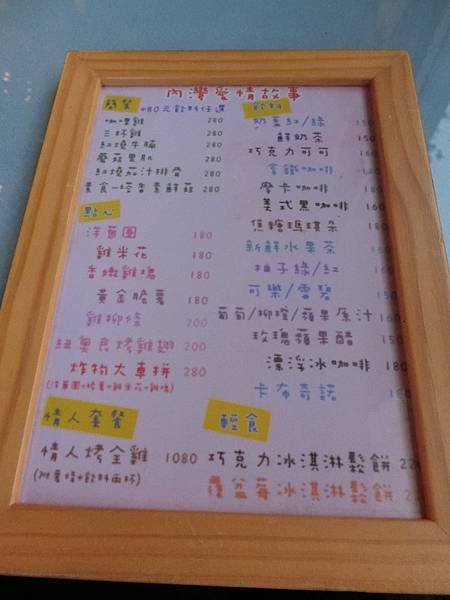 內灣愛情故事
簡餐 +80元飲料任選
咖哩雞 280
三杯雞 280
紅燒牛腩 280
蘑菇里肌 280
紅燒茄汁排骨 280
素食-塔香素鮮菇 280
點心
洋蔥圈 180
雞米花 180
香嫩雞塊 180
黃金脆薯 180
雞柳條 200
紐奧良烤雞翅 200
炸物大車拼 280
(洋蔥圈+烤薯+雞米花+雞塊)
情人套餐
情人烤全雞 1080
(附薯條+飲料兩杯)
飲料
奶蓋紅/綠 150
鮮奶茶 150
巧克力可可 160
拿鐵咖啡
摩卡咖啡 160
美式黑咖啡 160
焦糖瑪琪朵
新鮮水果茶 160
柚子綠/紅 160
可樂/雪碧 150
葡萄/柳橙/蘋果原汁 160
玫瑰蘋果醋 150
漂浮冰咖啡 180
卡布奇諾
輕食
巧克力冰淇淋鬆餅
覆盆莓冰淇淋鬆餅